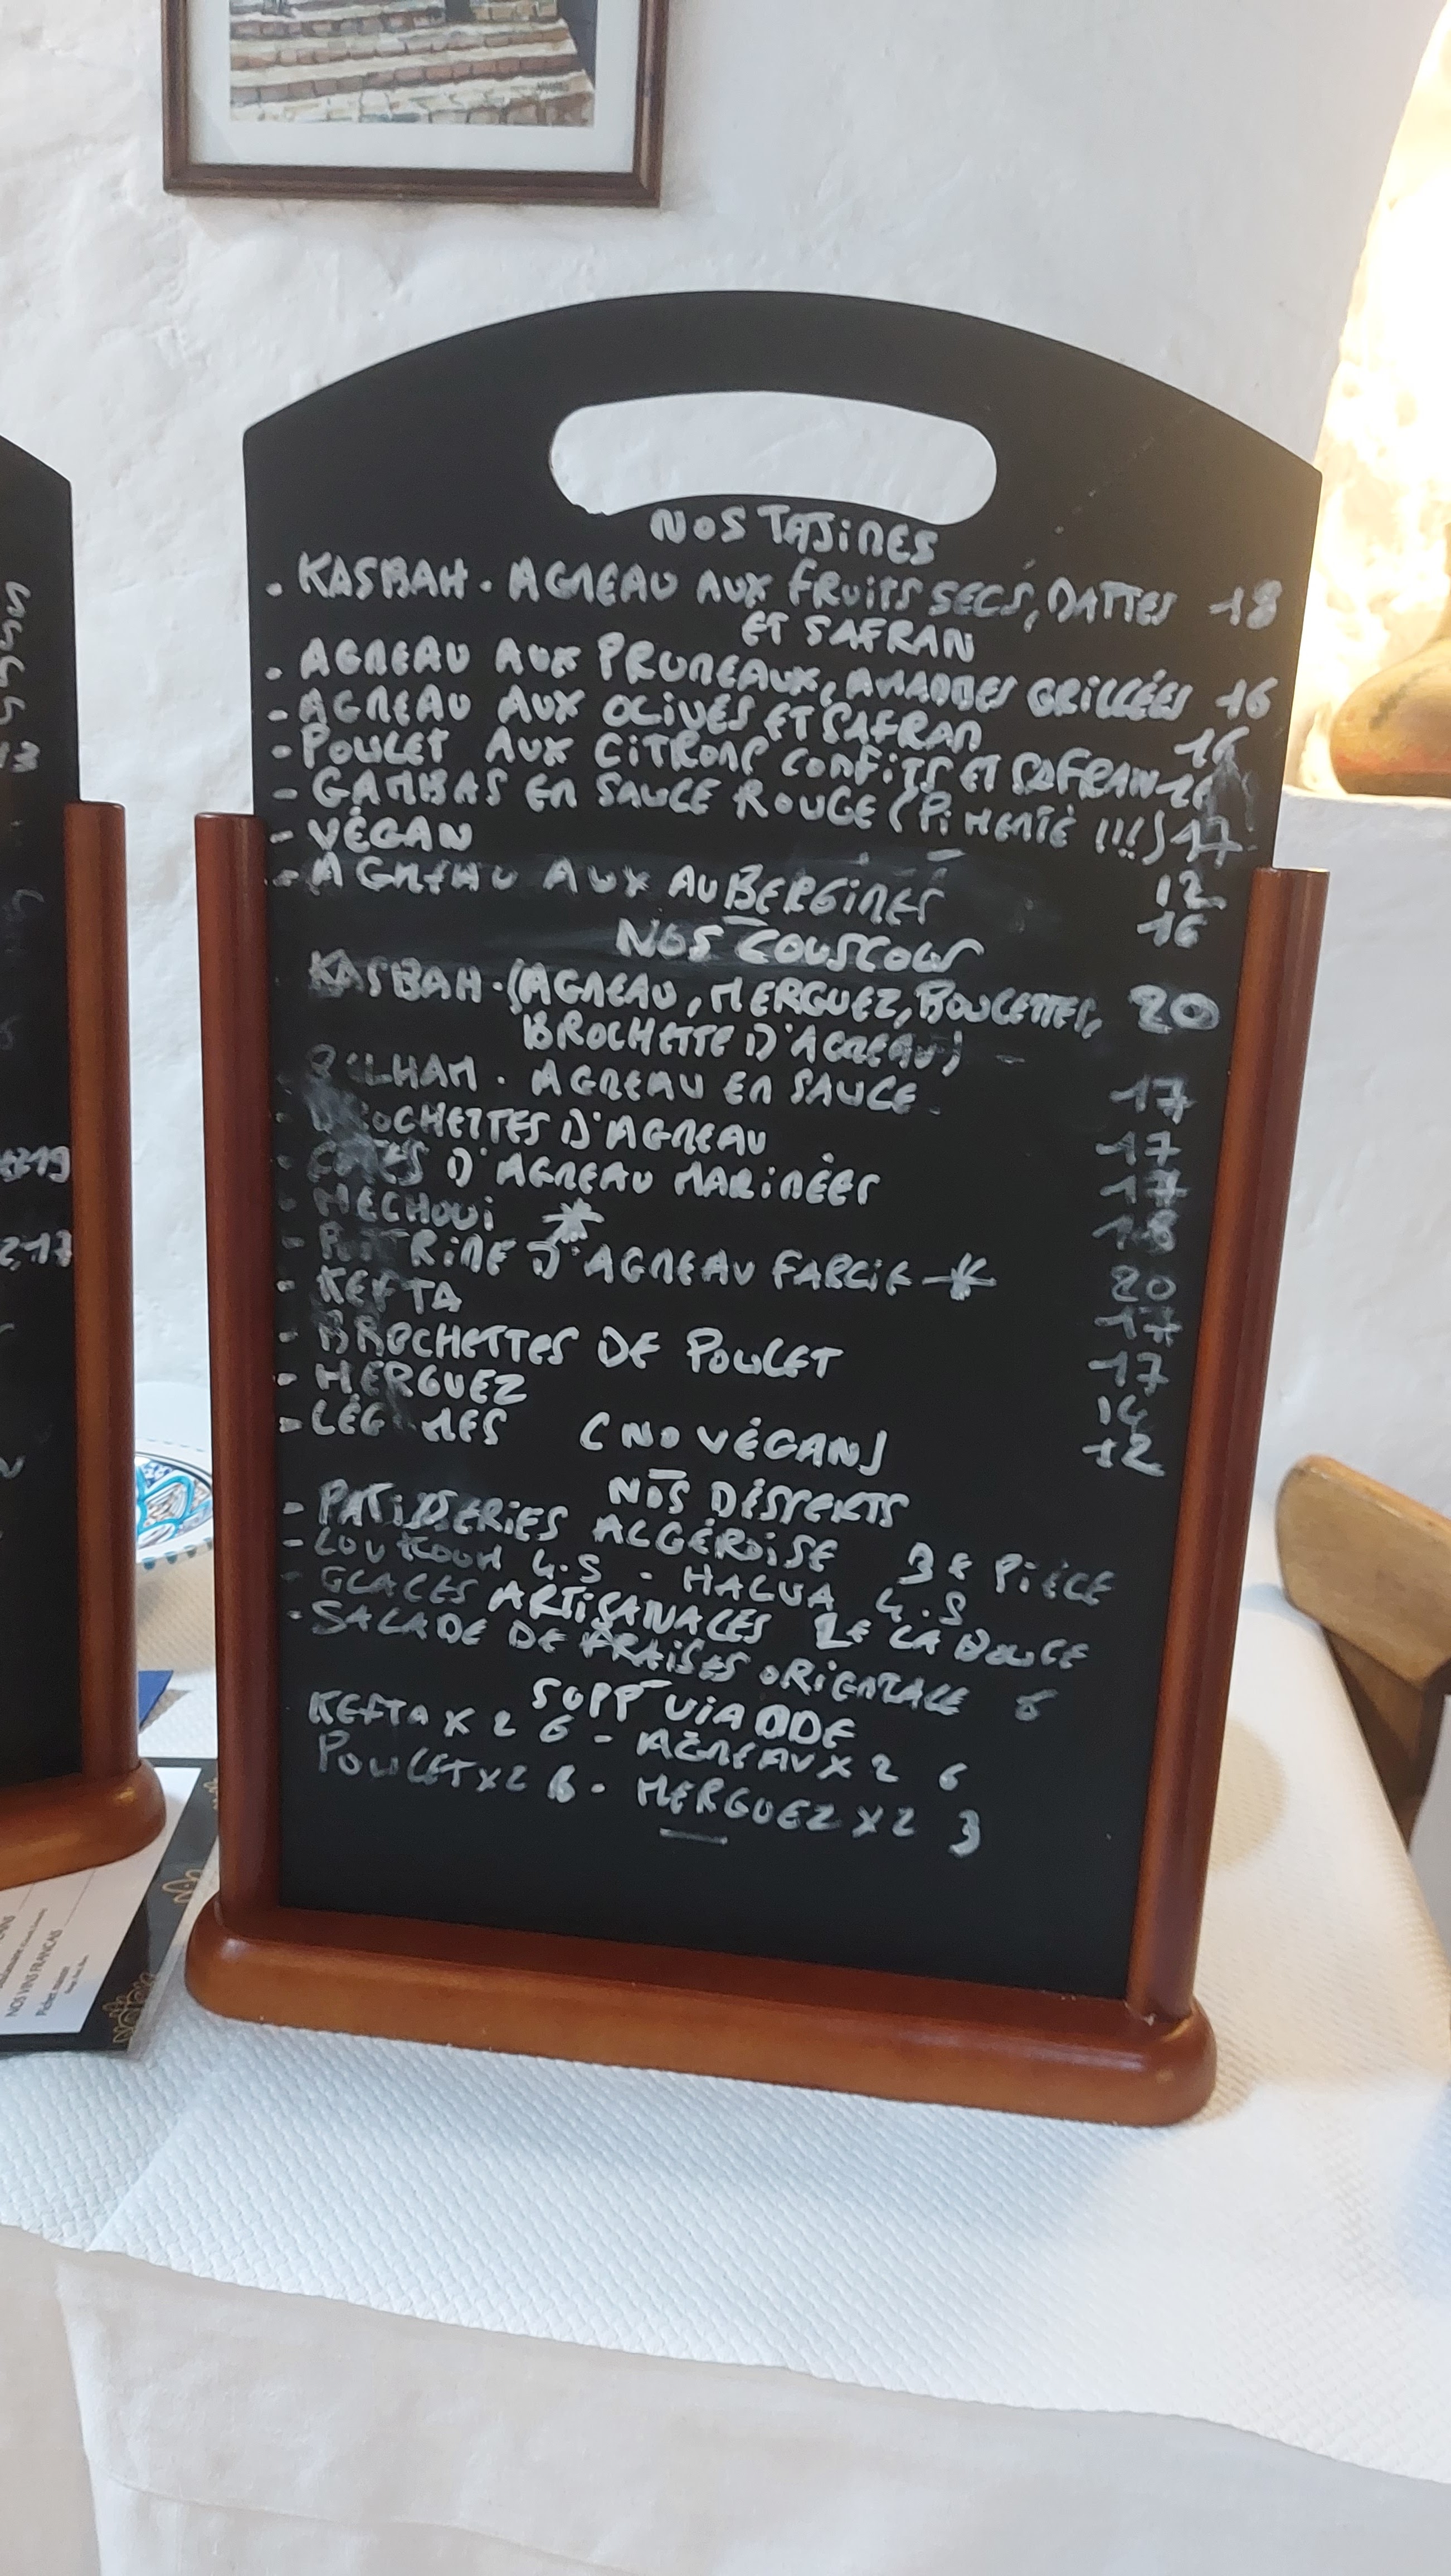 NOS TAJINES
. KASBAH . AGNEAU AUX FRUITS SECS, DATTES 18
ET SAFRAN
. AGNEAU AUX PRUNEAUX, AMANDES GRILLÉES 16
- AGNEAU AUX OLIVES ET SAFRAN 16
- POULET AUX CITRONS CONFITS ET SAFRAN 16
- GAMBAS EN SAUCE ROUGE (PIMENTÉ !!!) 17
- VÉGAN 12
- AGNEAU AUX AUBERGINES 16
NOS COUSCOUS
KASBAH . (AGNEAU, MERGUEZ, BOULETTES, 20
BROCHETTE D'AGNEAU)
. AGNEAU EN SAUCE 17
BROCHETTES D'AGNEAU 17
CÔTES D'AGNEAU MARINÉES 17
- MÉCHOUI * 18
- POITRINE D'AGNEAU FARCIE * 20
- KEFTA 17
- BROCHETTES DE POULET 17
- MERGUEZ 14
- LÉGUMES (NO VÉGAN) 12
NOS DÉSSERTS
- PATISSERIES ALGÉROISE 3€ PIÈCE
- LOUKOUM 4.5 - HALVA 4.5
- GLACES ARTISANALES 2€ LA BOULE
- SALADE DE FRAISES ORIENTALE 6
SUPP VIANDE
KEFTA X 2 6 - AGNEAU X 2 6
POULET X 2 6 - MERGUEZ X 2 3
NOS VINS FRANCAIS